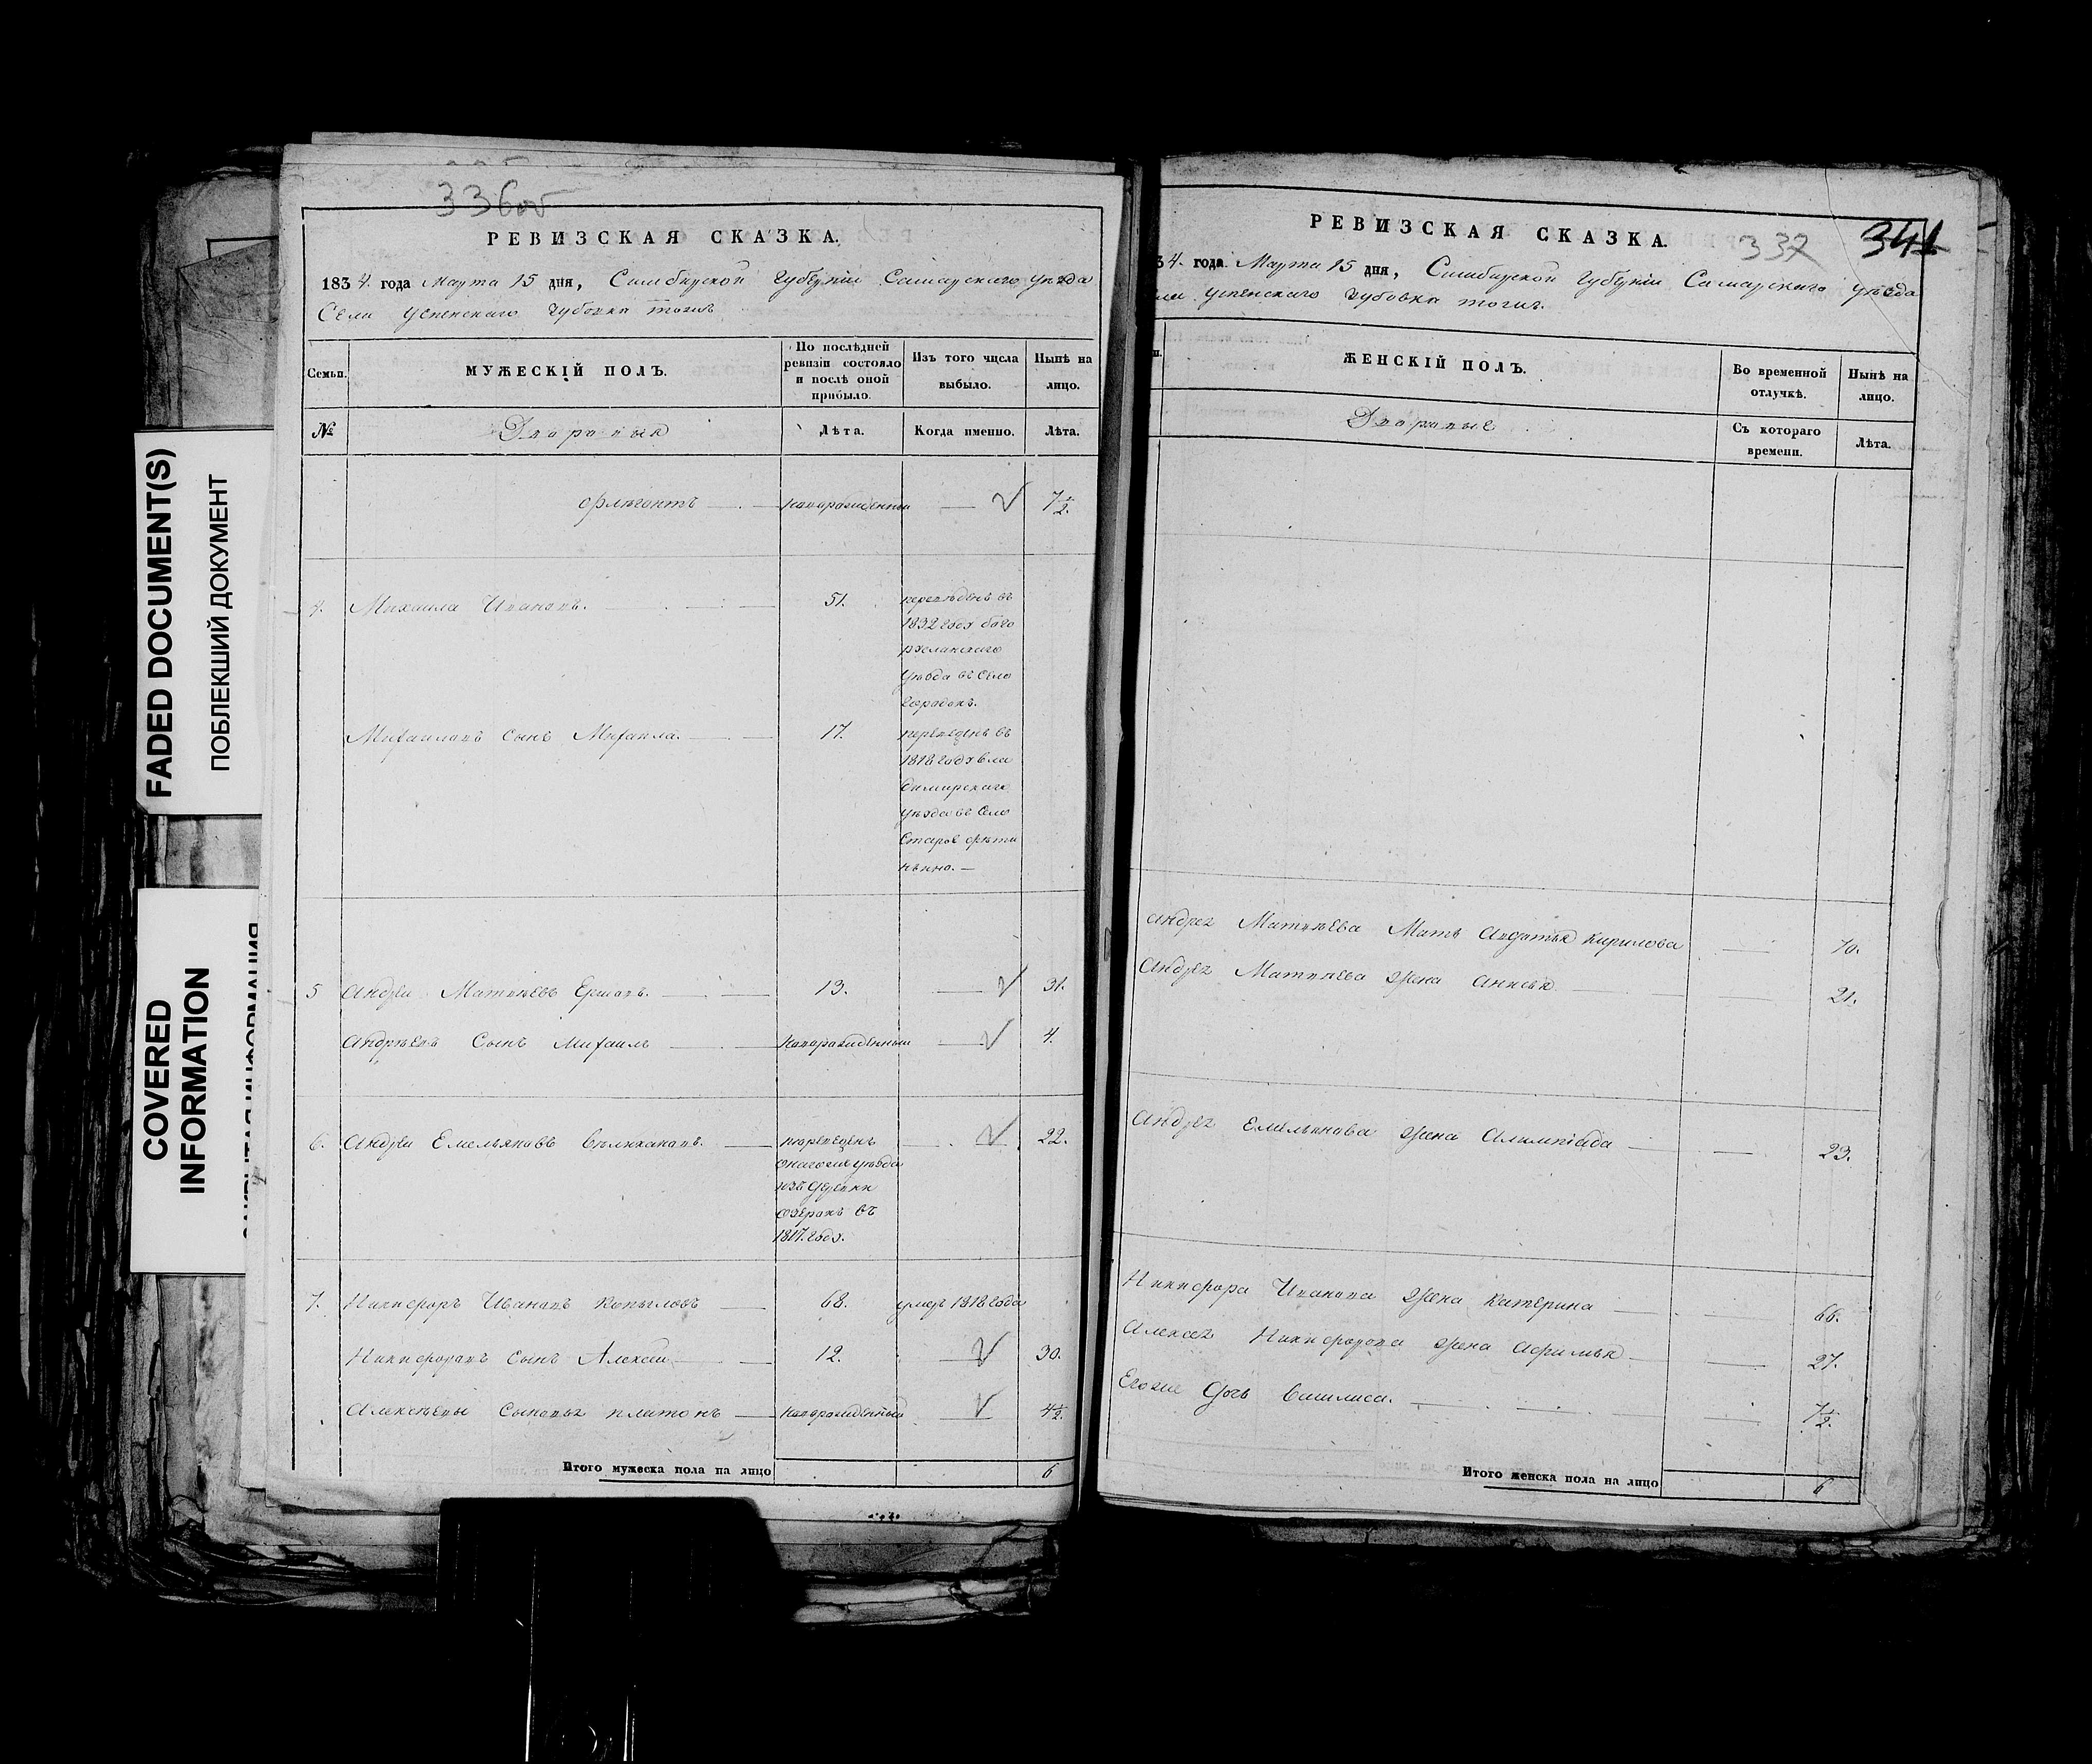 FADED DOCUMENT(S)
ПОБЛЕКШИЙ ДОКУМЕНТ
COVERED INFORMATION
336об
РЕВИЗСКАЯ СКАЗКА.
1834. года Марта 15 дня, Симбирской Губернии Самарского уѣзда
Села Успенскаго Чубовка тогиж
Семьи. МУЖЕСКІЙ ПОЛЪ. По послѣдней ревизіи состояло и послѣ оной прибыло. Изъ того числа выбыло. Нынѣ на лицо.
№ Дворовыя Лѣта. Когда именно. Лѣта.
Флегонтъ новорожденный 7½.
4. Михаила Ивановъ. 51. переведенъ въ
1832 году буго
русланскаго
уѣзда въ Село
Михаиловъ Сынъ Михаила. 17. переведенъ въ
1818 году вла
димирскаго
уѣзда въ Село
Старое
5 Андреи Матвѣевъ Ершовъ. 13. 31.
Андрѣевъ Сынъ Михаилъ новорожденный 4.
6. Андреи Емельяновъ Великановъ. переведенъ 22.
онагоже уѣзда
изъ деревни
озерокъ въ
1817. году.
7. Никифоръ Ивановъ Копыловъ 68. умеръ 1818 года
Никифоровъ Сынъ Алексеи 12. 30.
Алексѣевы Сыновья платонъ новорожденный 4½.
Итого мужеска пола на лицо 6
РЕВИЗСКАЯ СКАЗКА. 337 341
34. года Марта 15 дня, Симбирской Губернии Самарскаго уѣзда
ла Успенскаго Чубовка тогиж.
ЖЕНСКІЙ ПОЛЪ. Во временной отлучкѣ. Нынѣ на лицо.
Дворовые Съ котораго времени. Лѣта.
Андрея Матвѣева Мать Авдотья Кирилова 70.
Андрея Матвѣева Жена Анисья 21.
Андрея Емельянова Жена Алимпіада 23.
Никифора Иванова Жена Катерина 66.
Алексея Никифорова Жена Афимья 27.
Егоже Дочь Василиса. 7½.
Итого женска пола на лицо 6